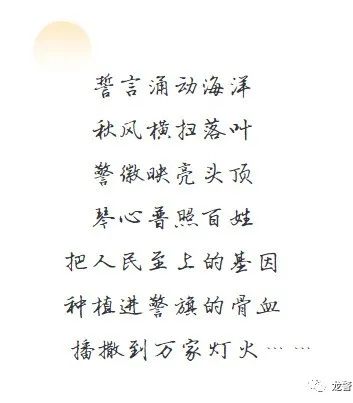 誓言涌动海洋
秋风横扫落叶
警徽映亮头顶
琴心普照百姓
把人民至上的基因
种植进警旗的骨血
播撒到万家灯火……
龙警